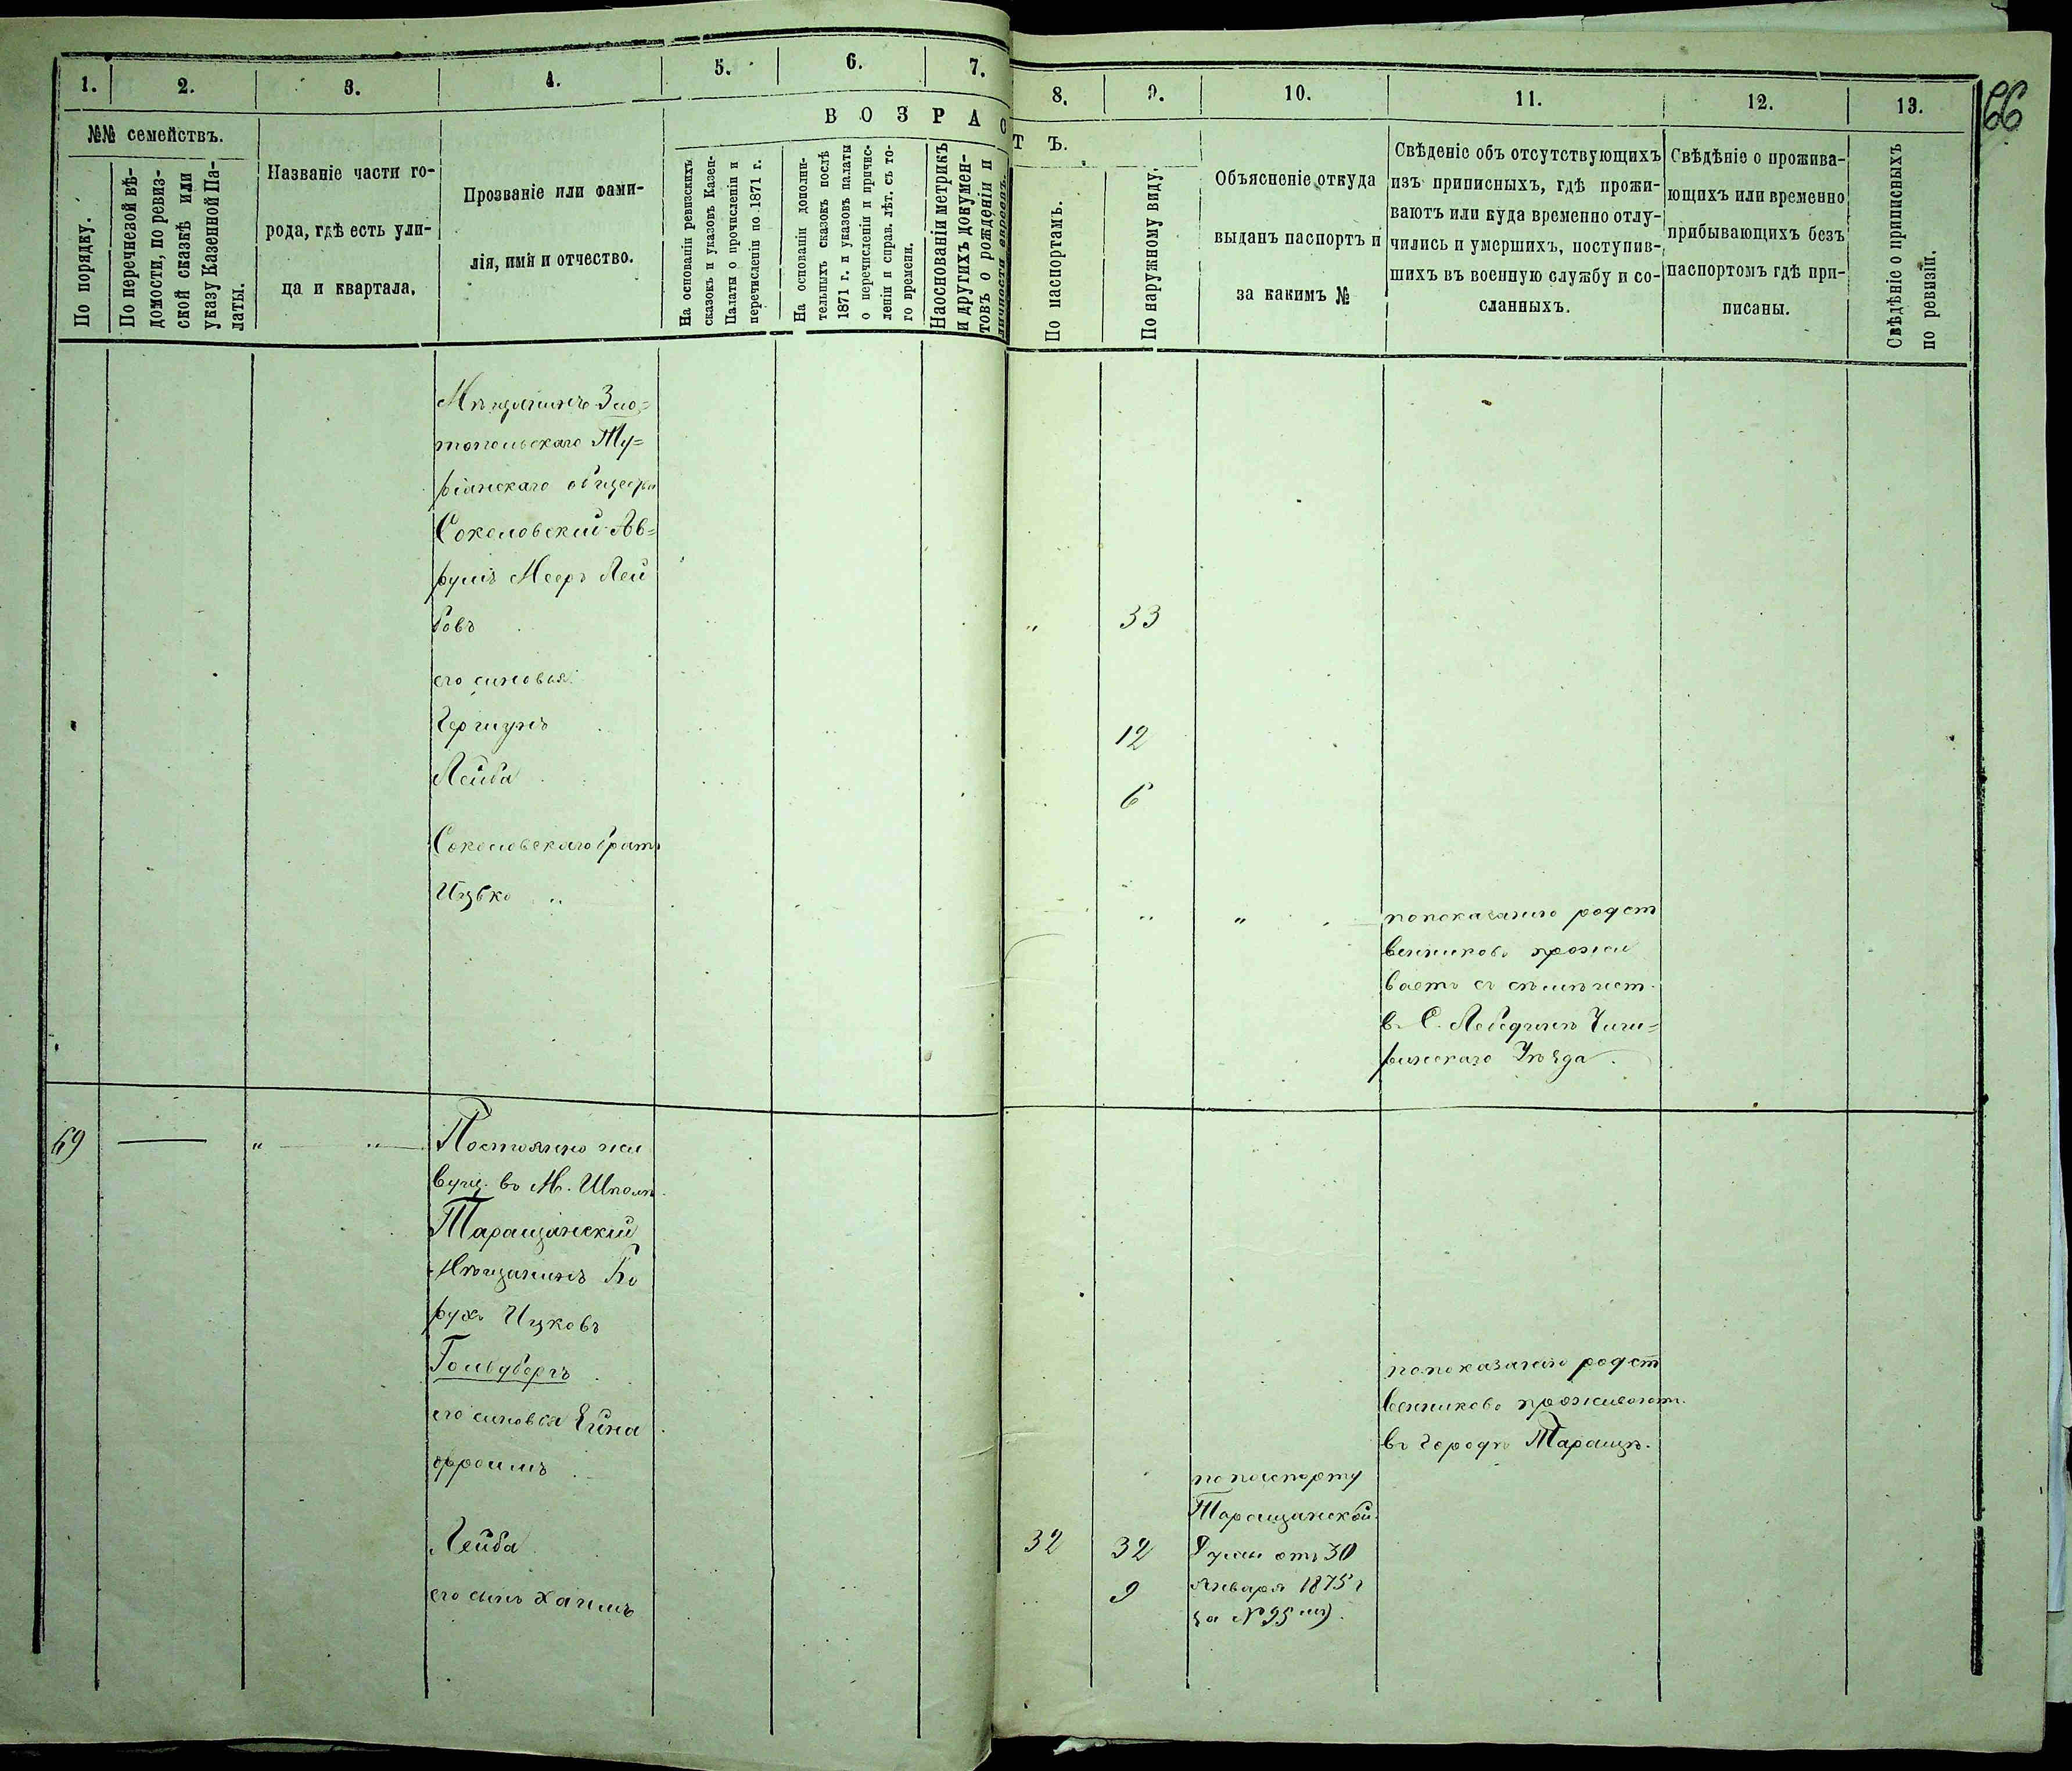 66
1.
2.
3.
4.
5.
6.
7.
8.
9.
10.
11.
12.
13.
№№ семействъ.
По порядку.
По перечневой вѣ-
домости, по ревиз-
ской сказкѣ или
указу Казенной Па-
латы.
Названіе части го-
рода, гдѣ есть ули-
ца и квартала.
Прозваніе или фами-
лія, имя и отчество.
ВОЗРАС
ТЪ.
На основаніи ревизскихъ
сказокъ и указовъ Казен-
Палаты о прочисленіи и
перечисленіи по 1871 г.
На основаніи дополни-
тельныхъ сказокъ послѣ
1871 г. и указовъ палаты
о перечисленіи и причис-
леніи и справ. лѣт. съ то-
го времени.
Наоснованіи метрикъ
и другихъ докумен-
товъ о рожденіи и
личности евреевъ.
По паспортамъ.
По наружному виду.
Объясненіе откуда
выданъ паспортъ и
за какимъ №
Свѣденіе объ отсутствующихъ
изъ приписныхъ, гдѣ прожи-
ваютъ или куда временно отлу-
чились и умершихъ, поступив-
шихъ въ военную службу и со-
сланныхъ.
Свѣдѣніе о прожива-
ющихъ или временно
прибывающихъ безъ
паспортомъ гдѣ при-
писаны.
Свѣдѣніе о приписныхъ
по ревизіи.
Мѣщанинъ Зло=
топольскаго Ту=
ріанскаго общества
Соколовскій Ав=
румъ Мееръ Лей
бовъ
" 33
его сыновья
Гершунъ
12
Лейба
6
Соколовскаго братъ
Ицько "
" "
попоказанію родст
венниковъ прожи
ваетъ съ семейст.
в. С. Лебединѣ Чиги=
ринскаго Уѣзда.
69 — " "
Постоянно жи
вущ. въ М. Шполѣ
Таращанскій
Мѣщанинъ Бо
рухъ Ицковъ
Гольдбергъ
его сыновья
Фроимъ
попоказанію родст
венниковъ проживают.
въ городѣ Таращѣ.
Лейба
32 32
его сынъ Хаимъ
9
по паспорту
Таращанской
Думы отъ 30
Января 1875 г
за № 95 мъ.